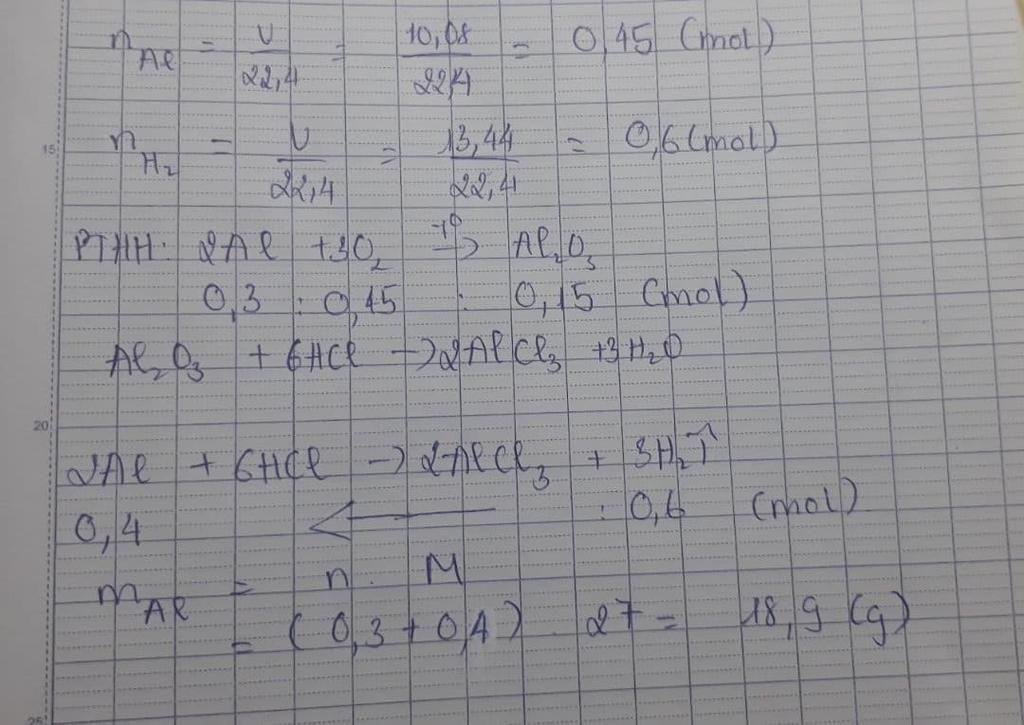 n_Al = V/22,4 = 10,08/22,4 = 0,45 (mol)
15 n_H₂ = V/22,4 = 13,44/22,4 = 0,6 (mol)
PTHH: 2Al + 3O₂ -t⁰-> Al₂O₃
0,3 : 0,45 : 0,15 (mol)
Al₂O₃ + 6HCl -> 2AlCl₃ + 3H₂O
20
2Al + 6HCl -> 2AlCl₃ + 3H₂↑
0,4 <- : 0,6 (mol)
m_Al = n . M
= (0,3 + 0,4) . 27 = 18,9 (g)
25